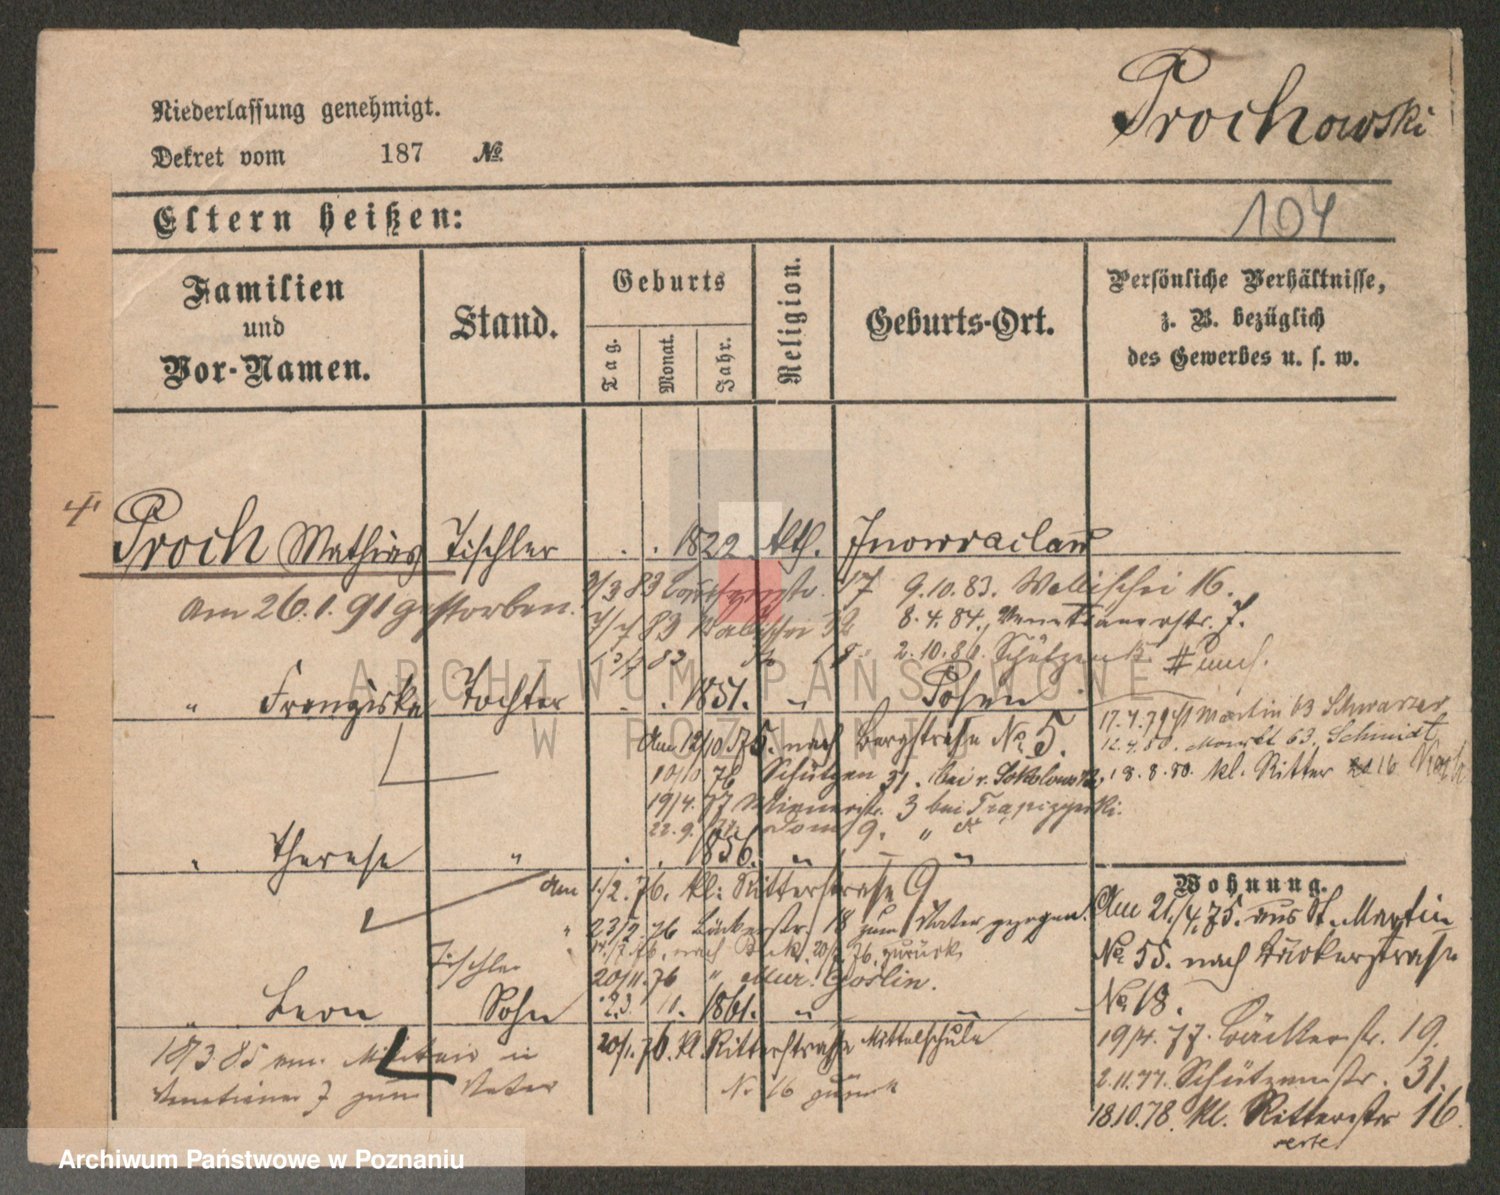 Prochowski
Niederlassung genehmigt.
Dekret vom 187 №
104
Eltern heißen:
Familien und Vor-Namen.
Stand.
Geburts
Tag.
Monat.
Jahr.
Religion.
Geburts-Ort.
Persönliche Verhältnisse,
z. B. bezüglich
des Gewerbes u. s. w.
Proch Mathias Tischler . . 1822 kth. Inowraclaw
Am 26.1.91 gestorben.
2/3 83 17 9.10.83. Wallischei 16.
7/7 83 Wallischei 32 8.4.84. Venetianerstr. 7.
2.10.86. Schützenstr.
" Franziska Tochter . . 1851. " Posen
17.4.79 St Martin 63 Schwarzer
12.4.80. Markt 63. Schmidt
Am 12/10 75. nach Bergstraße № 5.
10/10 76 Schützen 31. bei v. Sokolowski, 18.8.80. kl. Ritter 16
19/4. 77 Wienerstr. 3 bei
22.9. Dom 9. "
" Therese " . . 1856. " "
Am 1/2. 76. kl. Ritterstraße 9
" 23/2. 76 Bäckerstr. 18 zum Vater gezogen.
76. zurück
Tischler 20/11. 76 " Mur. Goslin.
" Leon Sohn 23. 11. 1861. " "
20/1. 76. kl. Ritterstraße Mittelschule
18/3 85 vom Militair in
Venetianer 7 zum Vater
№ 16 zurück
Wohnung.
Am 21./4. 75. aus St. Martin
№ 55. nach Bäckerstraße
№ 18.
19/4. 77. Bäckerstr. 19.
2.11.77. Schützenstr. 31.
18.10.78. kl. Ritterstr 16
verte
ARCHIWUM PAŃSTWOWE
W POZNANIU
Archiwum Państwowe w Poznaniu